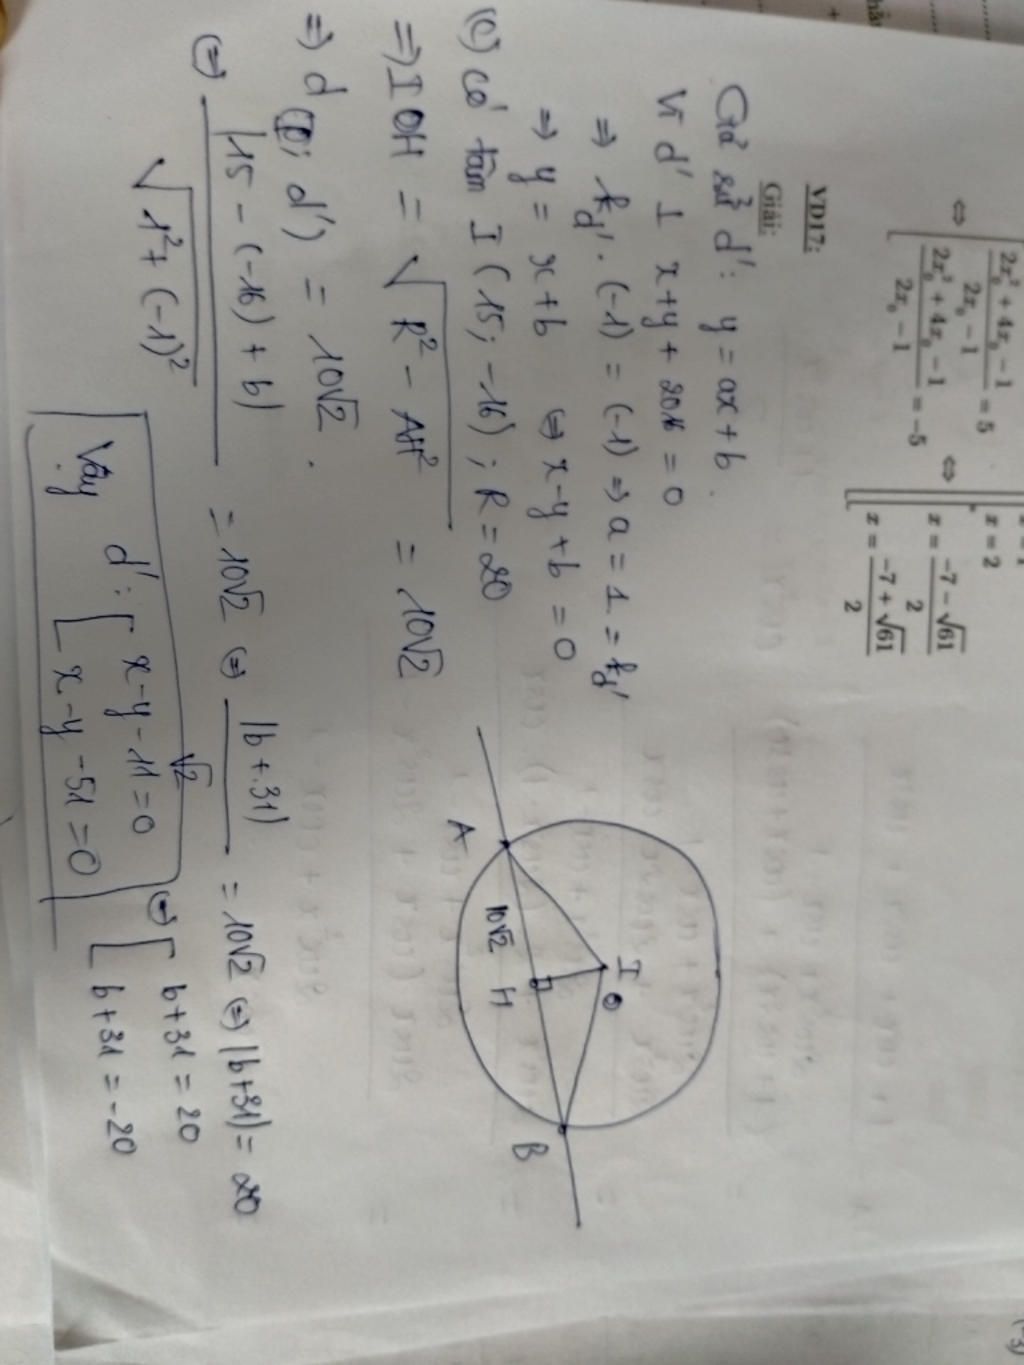 ⇔ [ (2x₀² + 4x₀ − 1)/(2x₀ − 1) = 5 ⇔ [ x = 2
(2x₀² + 4x₀ − 1)/(2x₀ − 1) = −5 x = (−7 − √61)/2
x = (−7 + √61)/2
VD17:
Giải:
Giả sử d': y = ax + b.
Vì d' ⊥ x + y + 2016 = 0
⇒ k_d' . (−1) = (−1) ⇒ a = 1 = k_d'
⇒ y = x + b ⇔ x − y + b = 0
(C) có tâm I (15; −16); R = 20
⇒ IH = √(R² − AH²) = 10√2
⇒ d (I; d') = 10√2.
⇔ |15 − (−16) + b| / √(1² + (−1)²) = 10√2 ⇔ |b + 31| / √2 = 10√2 ⇔ |b + 31| = 20
⇔ [ b + 31 = 20
b + 31 = −20
Vậy d': [ x − y − 11 = 0
x − y − 51 = 0
A
10√2
H
I
B